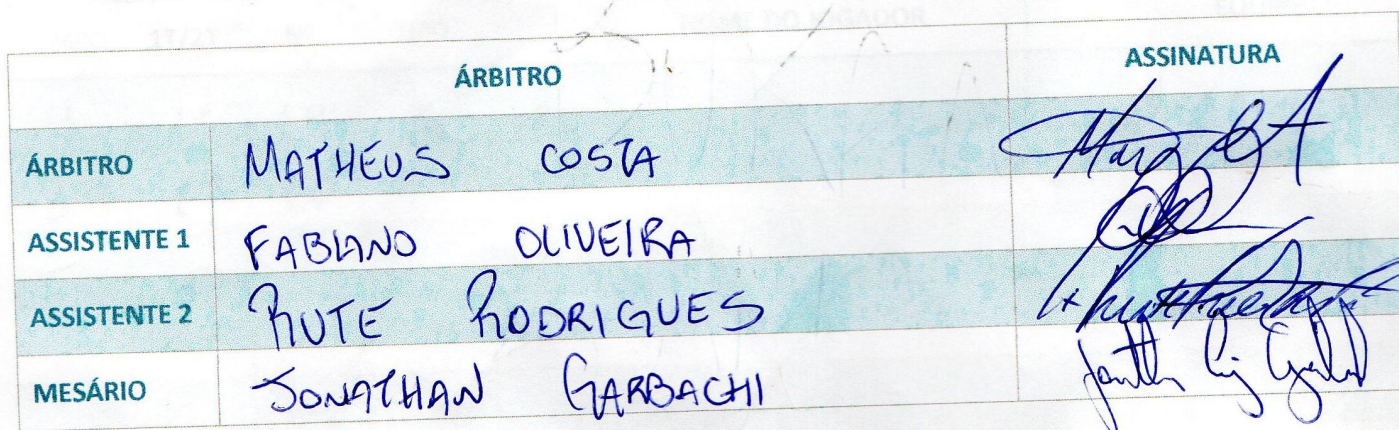 ÁRBITRO ASSINATURA
ÁRBITRO MATHEUS COSTA
ASSISTENTE 1 FABIANO OLIVEIRA
ASSISTENTE 2 RUTE RODRIGUES
MESÁRIO JONATHAN GARBACHI